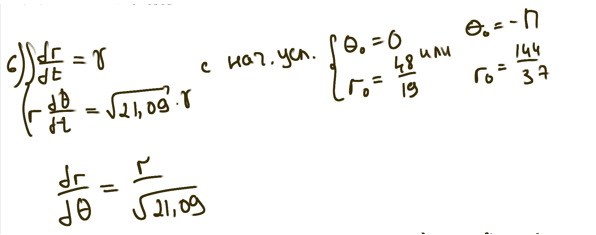 6) { dr/dt = γ
r dθ/dt = √21,09 · γ
с нач. усл. { θ₀ = 0
r₀ = 48/19
или
θ₀ = -π
r₀ = 144/37
dr/dθ = r/√21,09